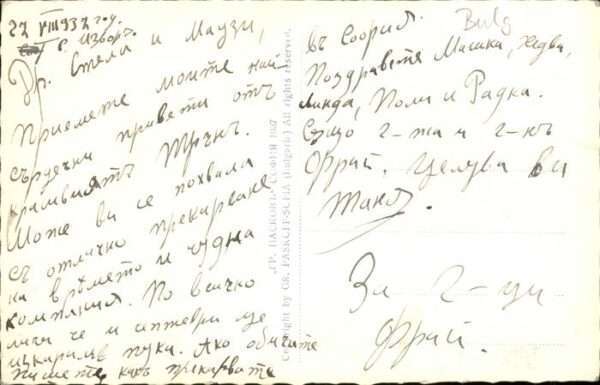 22 VIII 937 год.
с. Изворъ
Др. Стела и Маузи,
Приемете моите най-
сърдечни привети отъ
Трънъ.
Може ви се похваля
съ отлично прекарване
на времето и чудна
компания. По всичко
личи че и септември ще
изкараме тука. Ако обичате
пишете какъ прекарвате
ГР. ПАСКОВЪ, СОФИЯ 1937
Copyright by GR. PASKOFF-SOFIA (Bulgaria) All rights reserved.
Bulg
въ София.
Поздравете Машка, Хедва,
Линда, Поли и Радка.
Също г-жа и г-нъ
Фрай. Целува ви
За г-ци
Фрай.